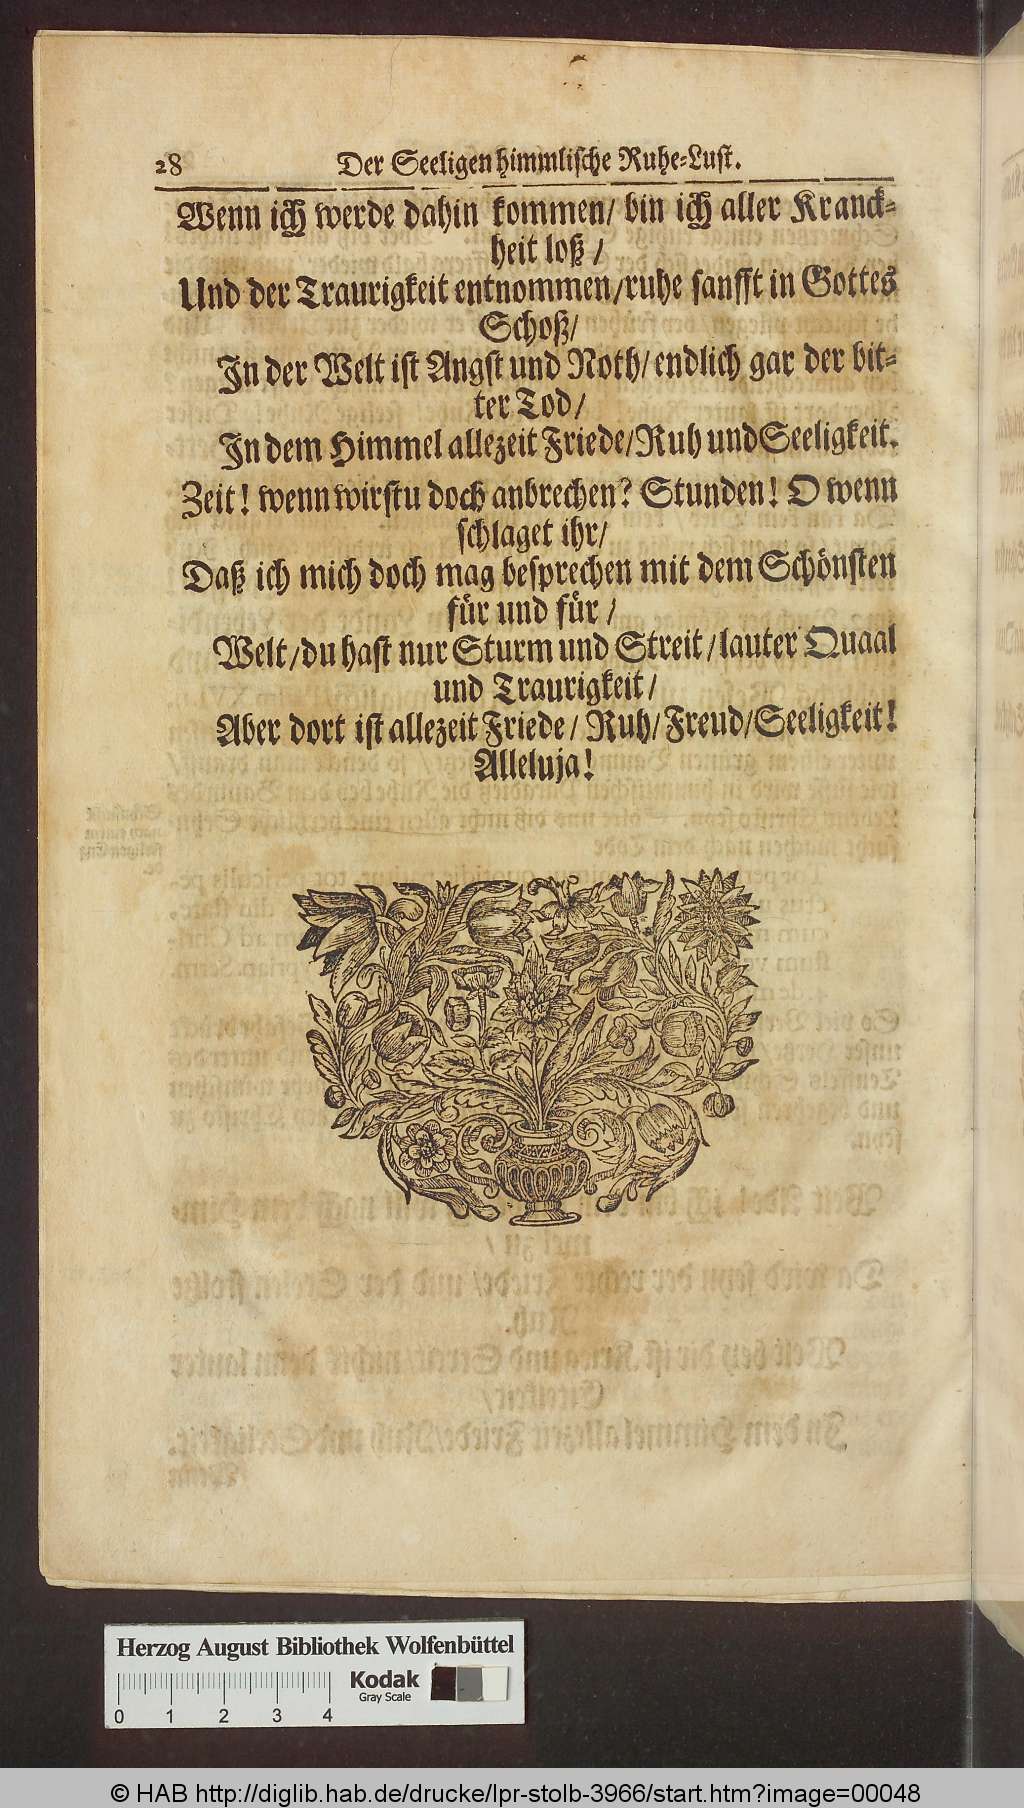 28 Der Seeligen himmlische Ruhe-Lust.
Wenn ich werde dahin kommen/ bin ich aller Kranck-
heit loß/
Und der Traurigkeit entnommen/ruhe sanfft in Gottes
Schoß/
In der Welt ist Angst und Noth/ endlich gar der bit-
ter Tod/
In dem Himmel allezeit Friede/Ruh und Seeligkeit.
Zeit! wenn wirstu doch anbrechen? Stunden! O wenn
schlaget ihr/
Daß ich mich doch mag besprechen mit dem Schönsten
für und für/
Welt/du hast nur Sturm und Streit/lauter Quaal
und Traurigkeit/
Aber dort ist allezeit Friede/ Ruh/ Freud/Seeligkeit!
Alleluja!
Herzog August Bibliothek Wolfenbüttel
Kodak
Gray Scale
0 1 2 3 4
© HAB http://diglib.hab.de/drucke/lpr-stolb-3966/start.htm?image=00048